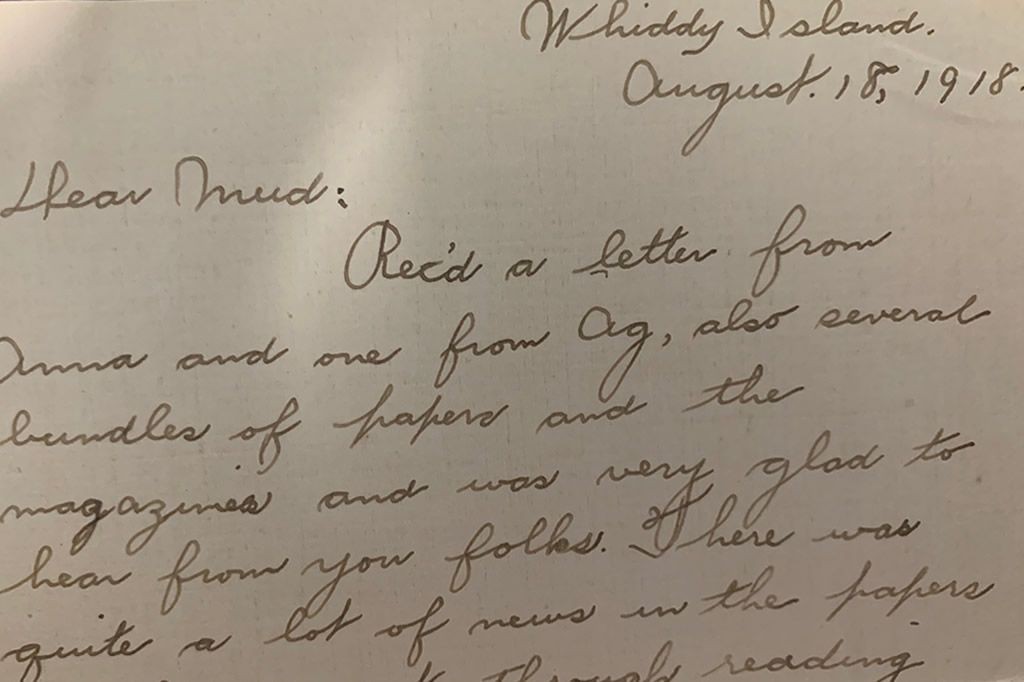 Whiddy Island.
August. 18, 1918.
Dear Mud:
Rec'd a letter from
Anna and one from Ag, also several
bundles of papers and the
magazines and was very glad to
hear from you folks. There was
quite a lot of news in the papers
through reading